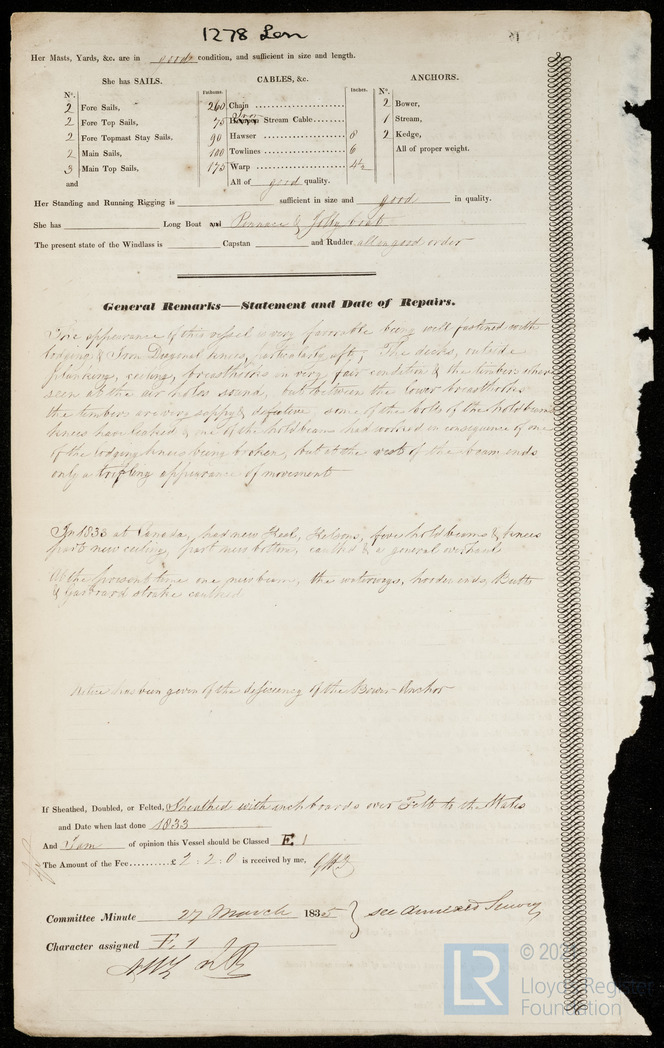 1278 Lon
Her Masts, Yards, &c. are in good condition, and sufficient in size and length.
She has SAILS.
CABLES, &c.
ANCHORS.
No.
Fathoms.
Inches.
No.
2 Fore Sails,
2 Fore Top Sails,
2 Fore Topmast Stay Sails,
2 Main Sails,
3 Main Top Sails,
and
260 Chain
75 Iron Stream Cable
90 Hawser 6
100 Towlines 6
175 Warp 4½
All of good quality.
2 Bower,
1 Stream,
2 Kedge,
All of proper weight.
Her Standing and Running Rigging is sufficient in size and good in quality.
She has Long Boat and Pinnace & Jolly boat
The present state of the Windlass is Capstan and Rudder all in good order
General Remarks—Statement and Date of Repairs.
The appearance of this vessel is very favorable being well fastened with
lodging & Iron Diagonal knees, particularly aft, The decks, outside
planking, ceiling, breasthooks in very fair condition & the timbers where
seen at the air holes sound, but between the lower breasthooks
the timbers are very sappy & defective, some of the bolts of the hold beam
knees have leaked & one of the hold beams had worked in consequence of one
of the lodging knees being broken, but at the rest of the beam ends
only a trifling appearance of movement
In 1833 at Canada, had new Keel, Kelsons, four hold beams & knees
part new ceiling, part new bottom, caulked & a general overhaul
At the present time one new beam, the waterways, hooden ends, Butts
& Garboard strake caulked
Notice has been given of the deficiency of the Bower Anchor
If Sheathed, Doubled, or Felted, Sheathed with inch boards over Felt to the Wales
and Date when last done 1833
And I am of opinion this Vessel should be Classed E 1
The Amount of the Fee £2:2:0 is received by me,
Committee Minute 27 March 1835 } see annexed Survey
Character assigned E 1
LR
Lloyd's Register
Foundation